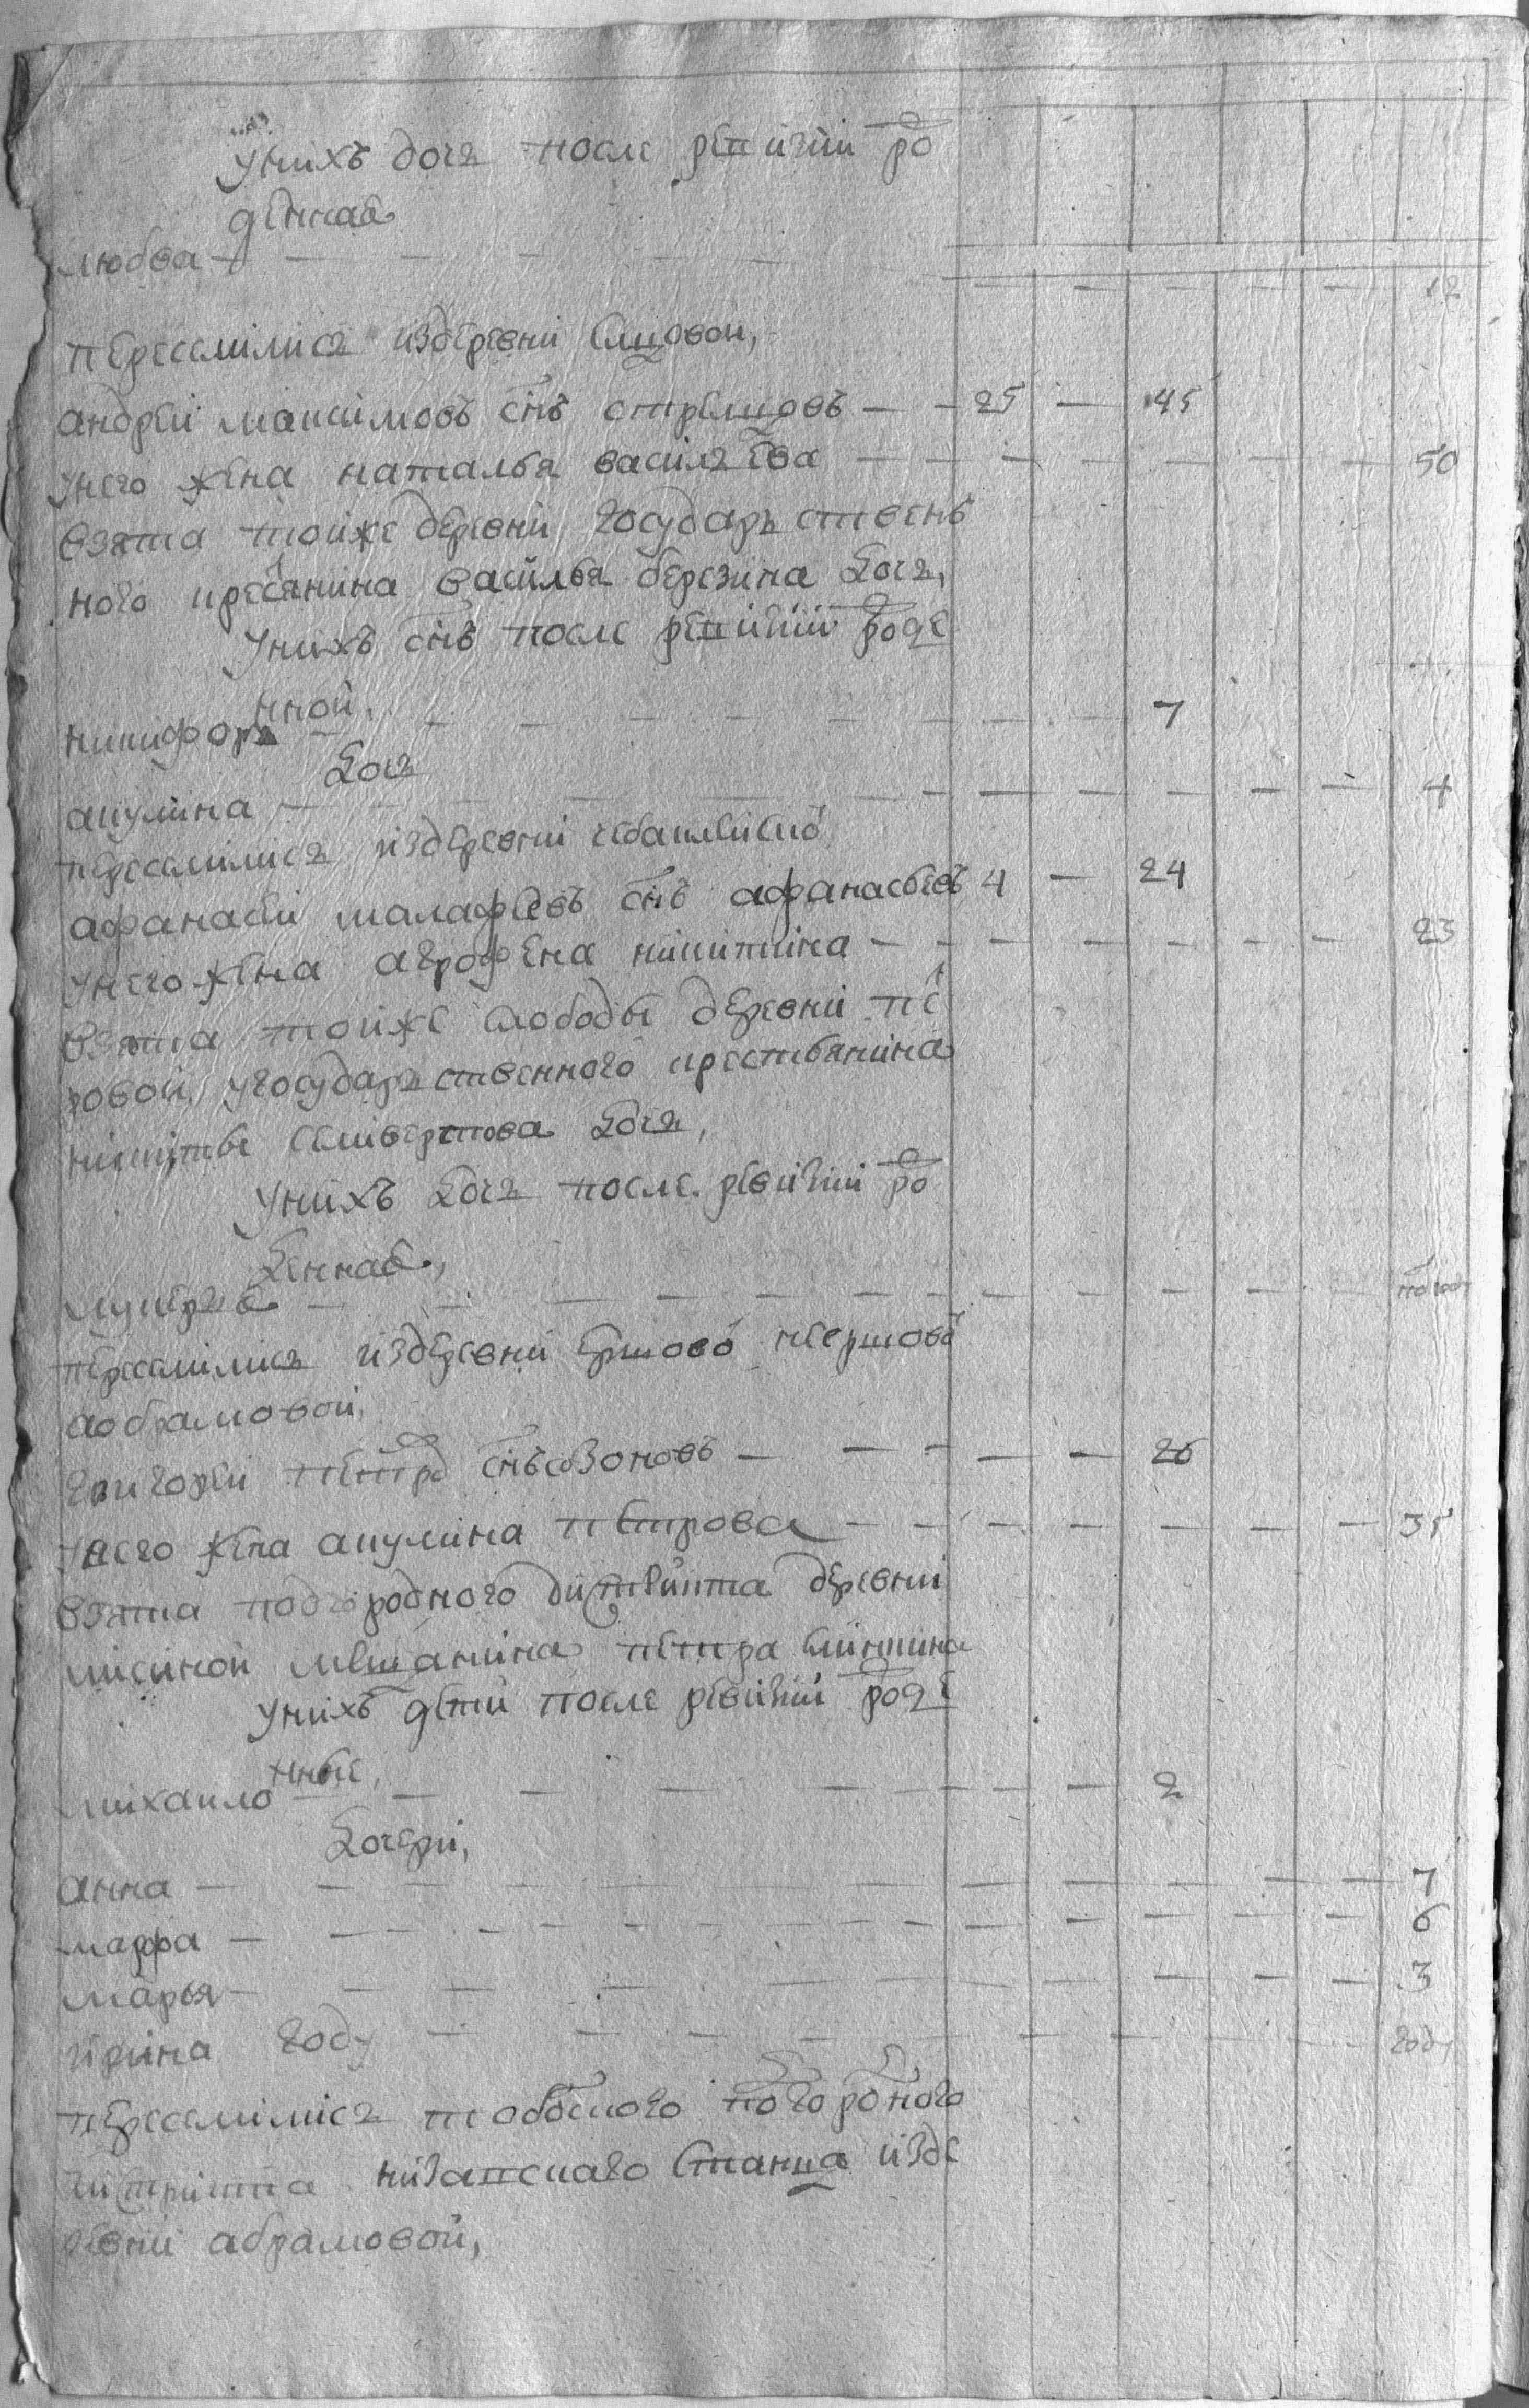 унихъ дочя после ревизии ро
деннаѣ
любва — — — — — — 12
переселился издеревни елцовои,
андрей максимовъ снъ стрелцовъ — 25 — 45
унего жена наталья василева — — — 50
взята тойже деревни государьственъ
ного кресянина василья березина дочя,
унихъ снъ после ревизии роде
нной,
никифоръ — — — 7
дочя
акулина — — — 4
переселился издеревни
афанасеи малафеевъ снъ афанасьевъ 4 — 24
унего жена агрофена никитина — — — 23
взята тойже слободы деревни пе
ровой, угосударьственного крестьянина
никиты селиверстова дочя,
унихъ дочя после ревизии ро
деннаѣ,
лукерья — — —
переселился издеревни ершово
аобрамовой,
григореи петро снъ созоновъ — — — 26
унего жена акулина петрова — — — 35
взята подгородного дистрикта деревни
мешанина петра
унихъ дети после ревизии роде
нные,
михаило — — — 2
дочери,
анна — — — 7
марфа — — — 6
марья — — — 3
ирина году — — — году
переселился тобоского погороного
дистрикта станца изде
ревни абрамовой,